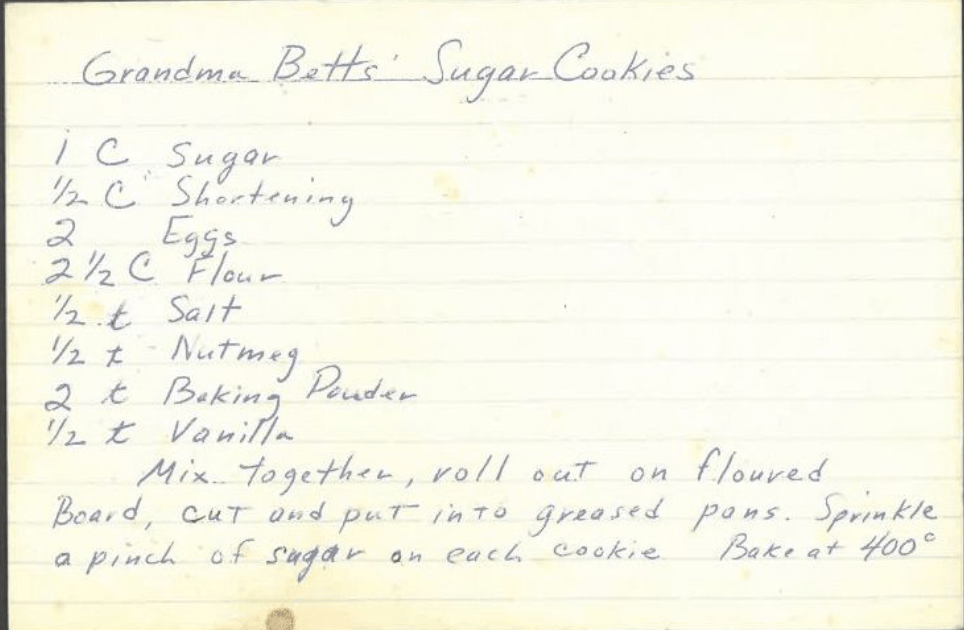 Grandma Betts' Sugar Cookies
1 C Sugar
1/2 C Shortening
2 Eggs
2 1/2 C Flour
1/2 t Salt
1/2 t Nutmeg
2 t Baking Powder
1/2 t Vanilla
Mix together, roll out on floured
Board, cut and put into greased pans. Sprinkle
a pinch of sugar on each cookie Bake at 400°